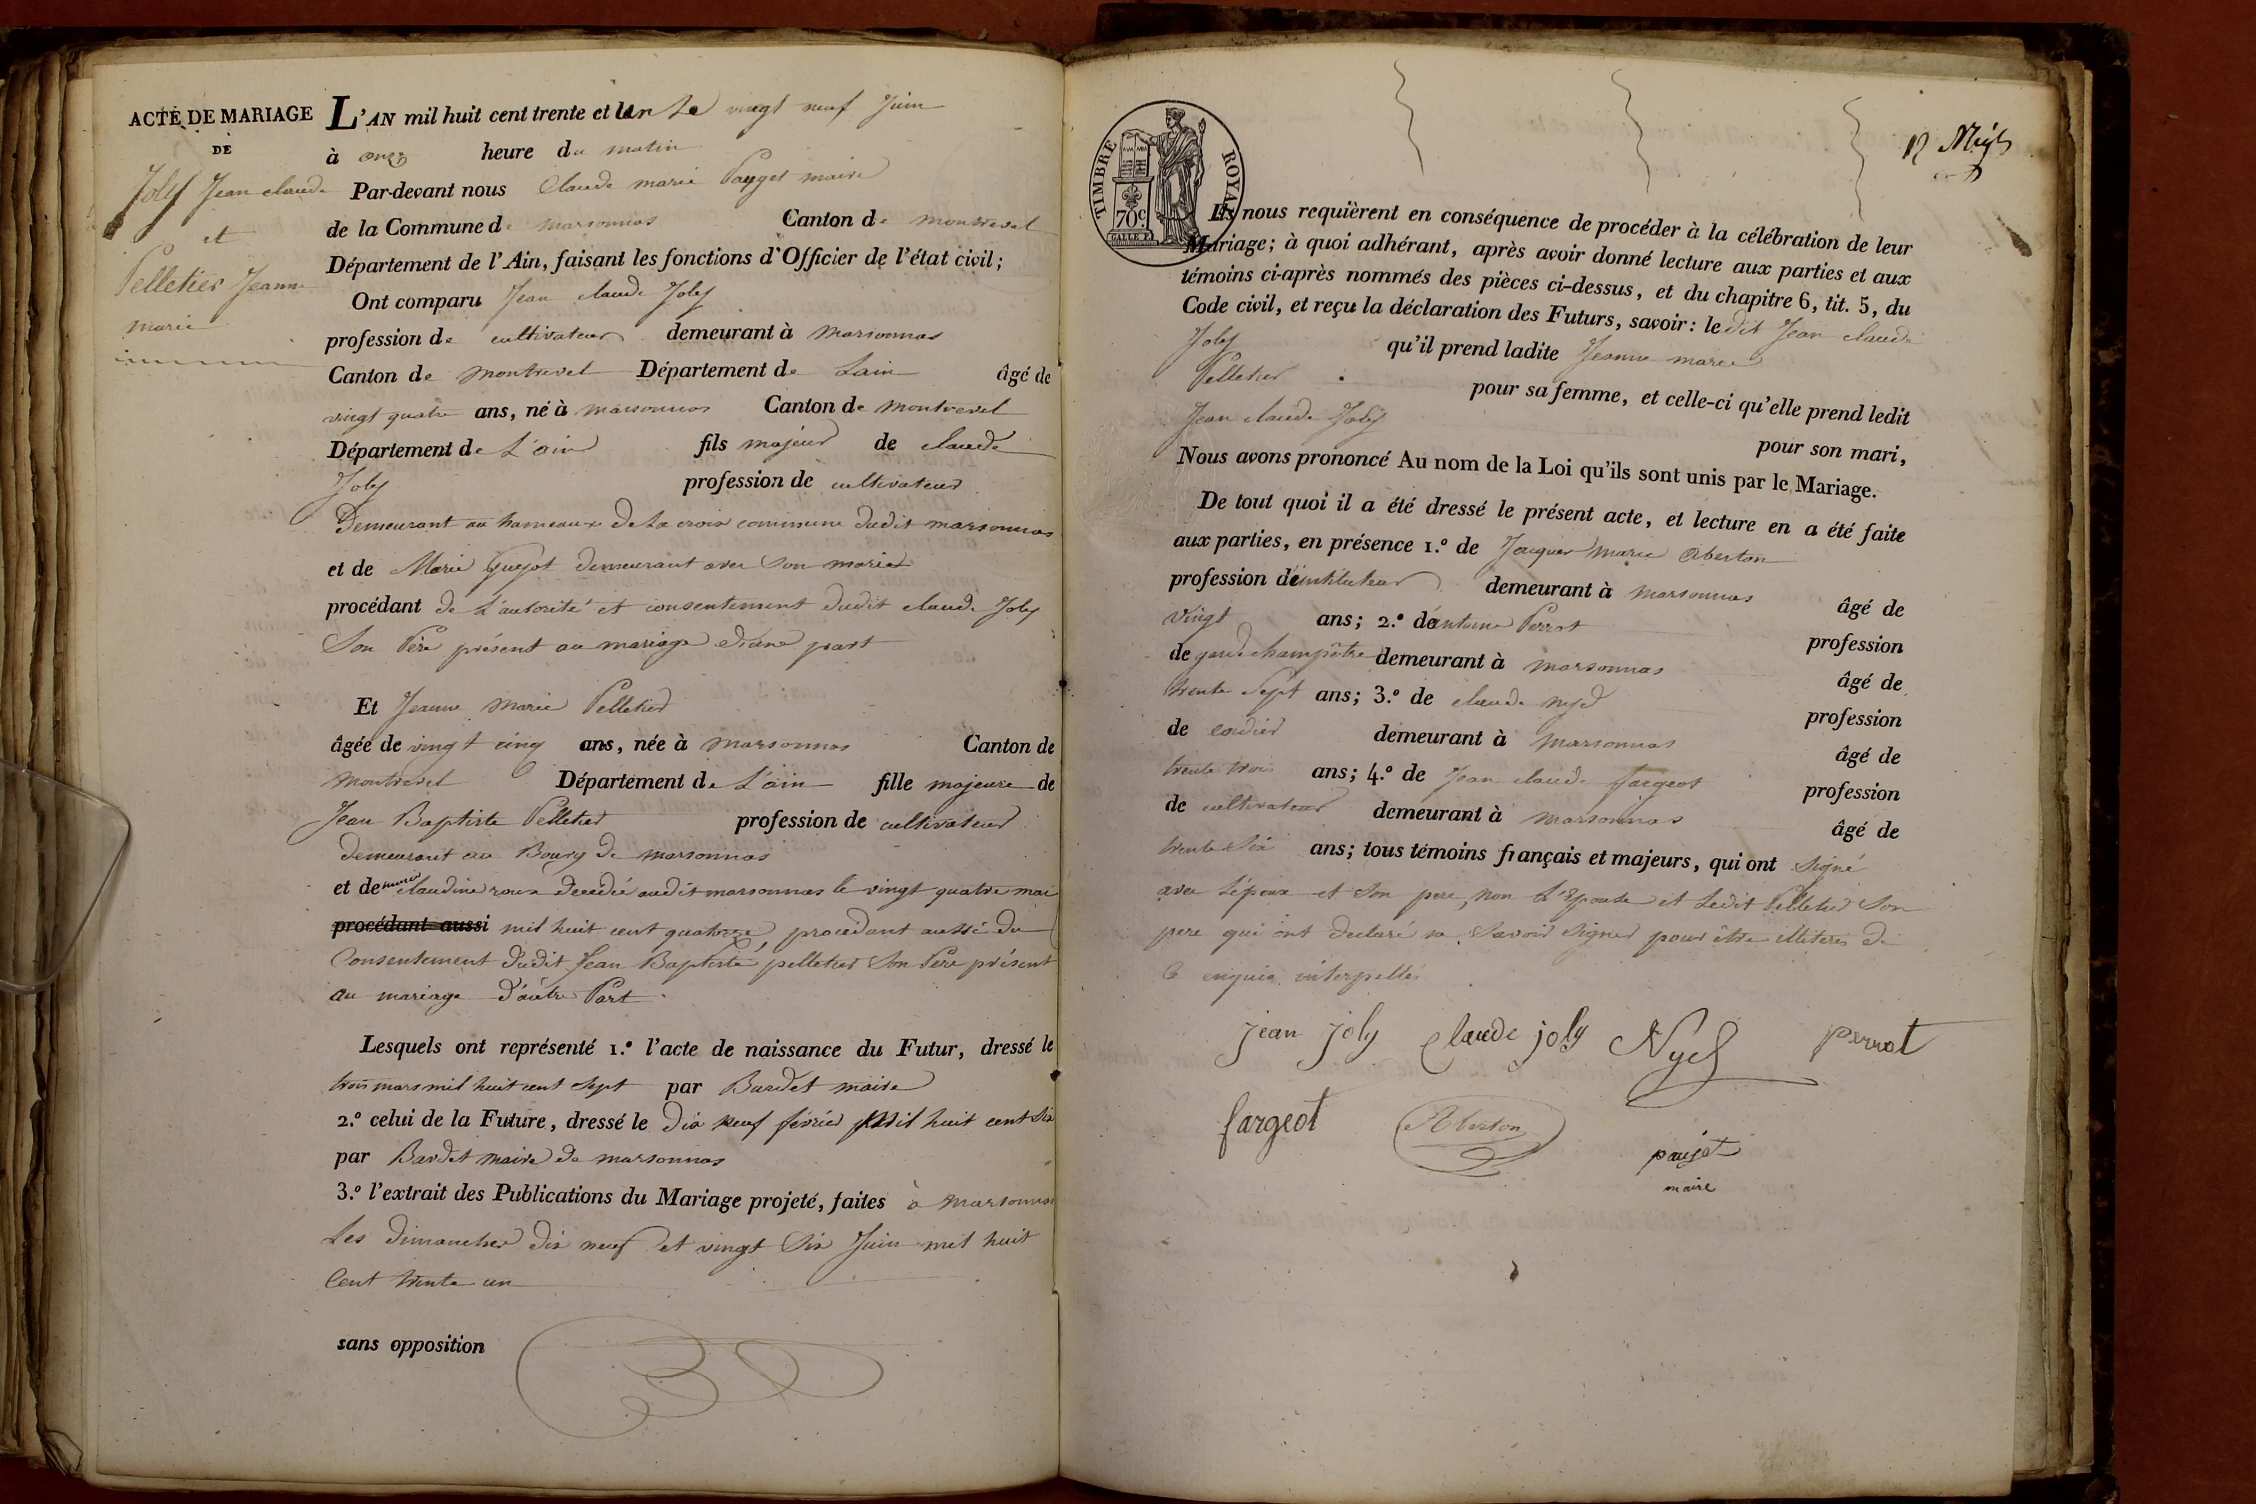 ACTE DE MARIAGE
DE
Joly Jean claude
et
Pelletier Jeanne
marie
L'AN mil huit cent trente et Un Le vingt neuf Juin
à onze heure du matin
Par-devant nous Claude marie Pauget maire
de la Commune de marsonnas Canton de montrevel
Département de l'Ain, faisant les fonctions d'Officier de l'état civil;
Ont comparu Jean claude Joly
profession de cultivateur demeurant à marsonnas
Canton de montrevel Département de Lain âgé de
vingt quatre ans, né à marsonnas Canton de montrevel
Département de L'ain fils majeur de claude
Joly profession de cultivateur
Demeurant au hameaux De La croix commune dudit marsonnas
et de Marie Guyot demeurant avec son marie
procédant de L'autorité et consentement dudit claude Joly
Son Père présent au mariage d'une part
Et Jeanne marie Pelletier
âgée de vingt cinq ans, née à marsonnas Canton de
montrevel Département de L'ain fille majeure de
Jean Baptiste Pelletier profession de cultivateur
demeurant au Bourg de marsonnas
et de claudine roux decedée audit marsonnas le vingt quatre mai
procédant aussi mil huit cent quatorze procedant aussi du
Consentement dudit Jean Baptiste pelletier Son Père présent
au mariage d'autre Part
Lesquels ont représenté 1.º l'acte de naissance du Futur, dressé le
trois mars mil huit cent sept par Bardet maire
2.º celui de la Future, dressé le Dix neuf février mil huit cent six
par Bardet maire de marsonnas
3.º l'extrait des Publications du Mariage projeté, faites à marsonnas
Les dimanches dix neuf et vingt six Juin mil huit
Cent trente un
sans opposition
TIMBRE ROYAL
70c.
Ils nous requièrent en conséquence de procéder à la célébration de leur
Mariage; à quoi adhérant, après avoir donné lecture aux parties et aux
témoins ci-après nommés des pièces ci-dessus, et du chapitre 6, tit. 5, du
Code civil, et reçu la déclaration des Futurs, savoir: le dit Jean claude
Joly qu'il prend ladite Jeanne marie
Pelletier pour sa femme, et celle-ci qu'elle prend ledit
Jean claude Joly pour son mari,
Nous avons prononcé Au nom de la Loi qu'ils sont unis par le Mariage.
De tout quoi il a été dressé le présent acte, et lecture en a été faite
aux parties, en présence 1.º de Jacques marie Aberton
profession d'instituteur demeurant à marsonnas âgé de
vingt ans; 2.º d'antoine Perrot profession
de garde champêtre demeurant à marsonnas âgé de
trente sept ans; 3.º de claude nyd profession
de cordier demeurant à marsonnas âgé de
trente trois ans; 4.º de Jean claude fargeot profession
de cultivateur demeurant à marsonnas âgé de
trente six ans; tous témoins français et majeurs, qui ont signé
avec L'époux et son pere, non L'Epouse et Ledit Pelletier Son
pere qui ont declaré ne Savoir signer pour être illiterés de
ce enquis interpellés
jean joly Claude joly Nyd perrot
fargeot Aberton
paujet
maire